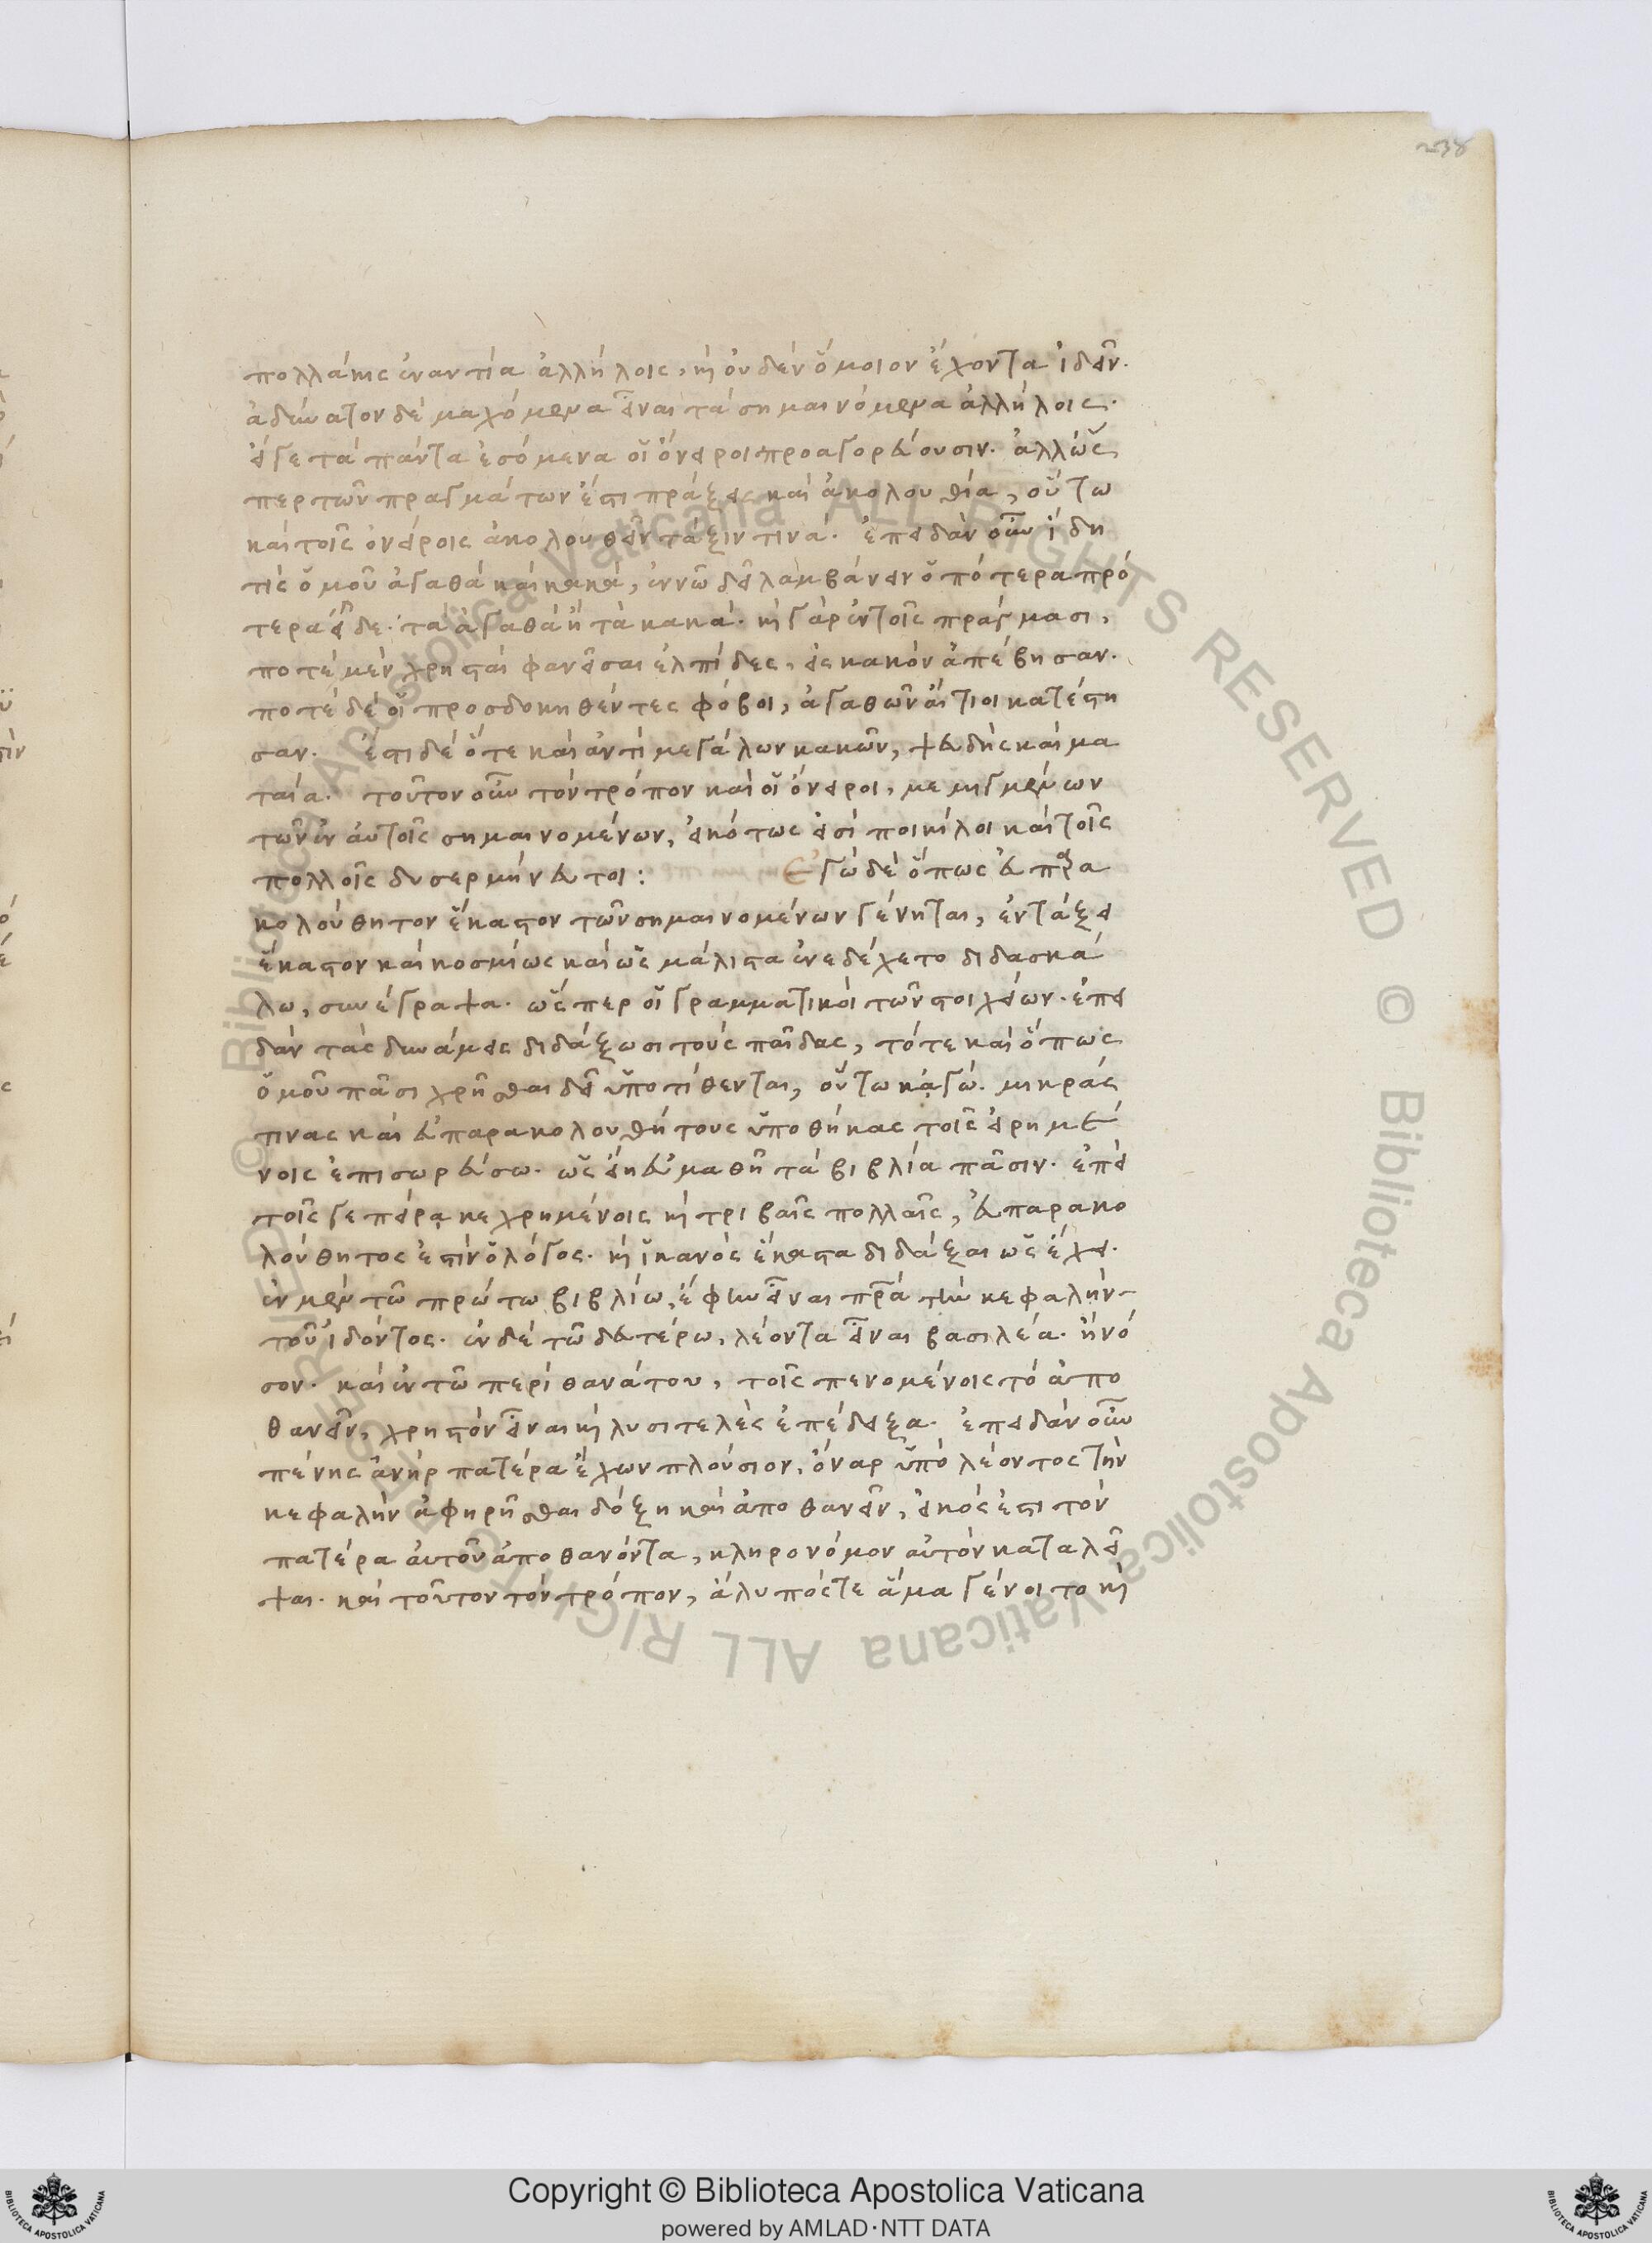 238
πολλάκις ἐναντία ἀλλήλοις, καὶ οὐδὲν ὅμοιον ἔχοντα ἰδεῖν.
ἀδύνατον δὲ μαχόμενα εἶναι τὰ σημαινόμενα ἀλλήλοις.
εἴγε τὰ πάντα ἐσόμενα οἱ ὄνειροι προαγορεύουσιν. ἀλλ' ὥς
περ τῶν πραγμάτων ἔστι πρᾶξις καὶ ἀκολουθία, οὕτω
καὶ τοῖς ὀνείροις ἀκολουθεῖν τάξιν τινά. ἐπειδὰν οὖν ἴδη
τίς ὁμοῦ ἀγαθὰ καὶ κακά, ἐννῶ δεῖ λαμβάνειν ὁπότερα πρό
τερα εἶδε. τὰ ἀγαθὰ ἢ τὰ κακά. καὶ γὰρ ἐν τοῖς πράγμασι,
ποτὲ μὲν χρησταὶ φανεῖσαι ἐλπίδες, εἰς κακὸν ἀπέβησαν.
ποτὲ δὲ οἱ προσδοκηθέντες φόβοι, ἀγαθῶν αἴτιοι κατέστη
σαν. ἔστι δὲ ὅτε καὶ ἀντὶ μεγάλων κακῶν, ψευδὴς καὶ μα
ταία. τοῦτον οὖν τὸν τρόπον καὶ οἱ ὄνειροι, μεμιγμένων
τῶν ἐν αὐτοῖς σημαινομένων, εἰκότως εἰσὶ ποικίλοι καὶ τοῖς
πολλοῖς δυσερμήνευτοι: Ἐγὼ δὲ ὅπως εὐπαρα
κολούθητον ἕκαστον τῶν σημαινομένων γένηται, ἐν τάξει
ἕκαστον καὶ κοσμίως καὶ ὡς μάλιστα ἐνεδέχετο διδασκά
λω, συνέγραψα. ὥσπερ οἱ γραμματικοὶ τῶν στοιχείων. ἐπει
δὰν τὰς δυνάμεις διδάξωσι τοὺς παῖδας, τότε καὶ ὅπως
ὁμοῦ πᾶσι χρῆσθαι δεῖ ὑποτίθενται, οὕτω κἀγώ. μικράς
τινας καὶ εὐπαρακολουθήτους ὑποθήκας τοῖς εἰρημέ
νοις ἐπισωρεύσω. ὡς εἴη εὐμαθῆ τὰ βιβλία πᾶσιν. ἐπεὶ
τοῖς γε πείρᾳ κεχρημένοις καὶ τριβαῖς πολλαῖς, εὐπαρακο
λούθητος ἐστὶν ὁ λόγος. καὶ ἱκανὸς ἕκαστα διδάξαι ὡς ἔχει.
ἐν μὲν τῶ πρώτω βιβλίω, ἔφην εἶναι πρα τὴν κεφαλὴν
τοῦ ἰδόντος. ἐν δὲ τῶ δευτέρω, λέοντα εἶναι βασιλέα. ἢ νό
σον. καὶ ἐν τῶ περὶ θανάτου, τοῖς πενομένοις τὸ ἀπο
θανεῖν, χρηστὸν εἶναι καὶ λυσιτελὲς ἐπέδειξα. ἐπειδὰν οὖν
πένης ἀνὴρ πατέρα ἔχων πλούσιον, ὄναρ ὑπὸ λέοντος τὴν
κεφαλὴν ἀφηρῆσθαι δόξη καὶ ἀποθανεῖν, εἰκός ἐστι τὸν
πατέρα αὐτοῦ ἀποθανόντα, κληρονόμον αὐτὸν καταλεῖ
ψαι. καὶ τοῦτον τὸν τρόπον, ἄλυπός τε ἅμα γένοιτο καὶ
Copyright © Biblioteca Apostolica Vaticana
powered by AMLAD·NTT DATA